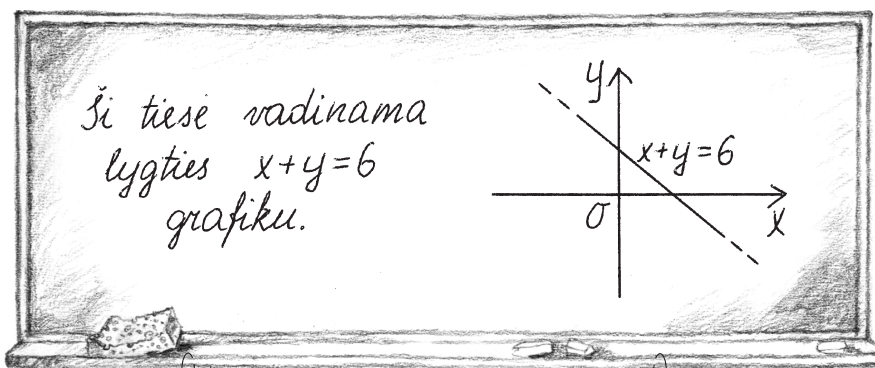 Ši tiesė vadinama
lygties x+y=6
grafiku.
y
x+y=6
O
x